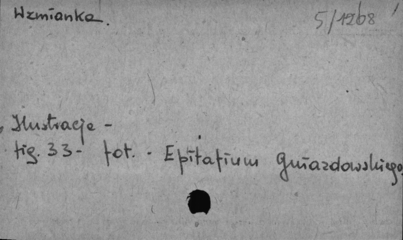 Wzmianka.
5/1268
Ilustracje -
fig. 33 - fot. - Epitafium Gniazdowskiego